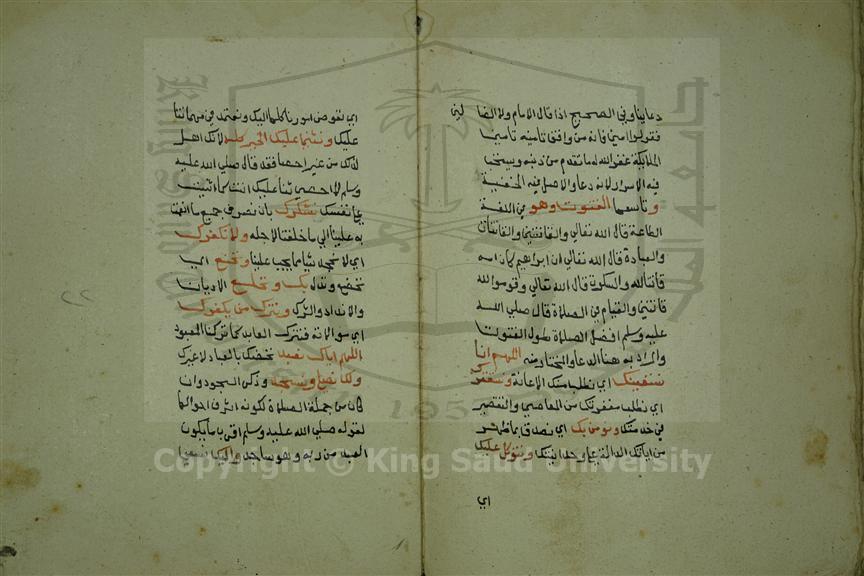 دعاينا وفي الصحيح اذا قال الامام ولا الضا لين
فقولوا امين فانه من وافق تامينه تامين
الملايكة غفر الله له ما تقدم من ذنبه ويستحب
فيه الاسرار لانه دعا والاصل فيه الخفية
وتاسعها القنوت وهو في اللغة
الطاعة قال الله تعالى والقانتين والقانتات
والعبادة قال الله تعالى ان ابراهيم كان امة
قانتا لله والسكوت قال الله تعالى وقوموا لله
قانتين والقيام في الصلاة قال صلى الله
عليه وسلم افضل الصلاة طول القنوت
والمراد به هنا الدعا والمختار فيه اللهم انا
نستعينك اي نطلب منك الاعانة ونستغفرك
اي نطلب مغفرتك من المعاصي والتقصير
في خدمتك ونؤمن بك اي نصدق بما ظهر
من اياتك الدالة على وحدانيتك ونتوكل عليك
اي
اي نفوض امورنا كلها اليك ونعتمد في مهماتنا
عليك ونثني عليك الخير كله لانك اهل
لذلك من غير احصا فقد قال صلى الله عليه
وسلم لا احصي ثنا عليك انت كما اثنيت
على نفسك نشكرك بان نصرف جميع ما انعمت
به علينا الى ما خلقتنا لاجله ولا نكفرك
اي لا نجحد شيا مما يجب علينا ونخنع اي
نخضع ونذل بك ونخلع الاديان
والانداد والشرك ونترك من يكفرك
اي سوالاته فنترك العابد كما تركنا المعبود
اللهم اياك نعبد نخصك بالعبادة لا غيرك
ولك نصلي ونسجد وذكر السجود وان
كان من جملة الصلاة لكونه اشرف احوالها
لقوله صلى الله عليه وسلم اقرب ما يكون
العبد من ربه وهو ساجد واليك نسعى
٢٢
Copyright © King Saud University
جامعة الملك سعود
1957